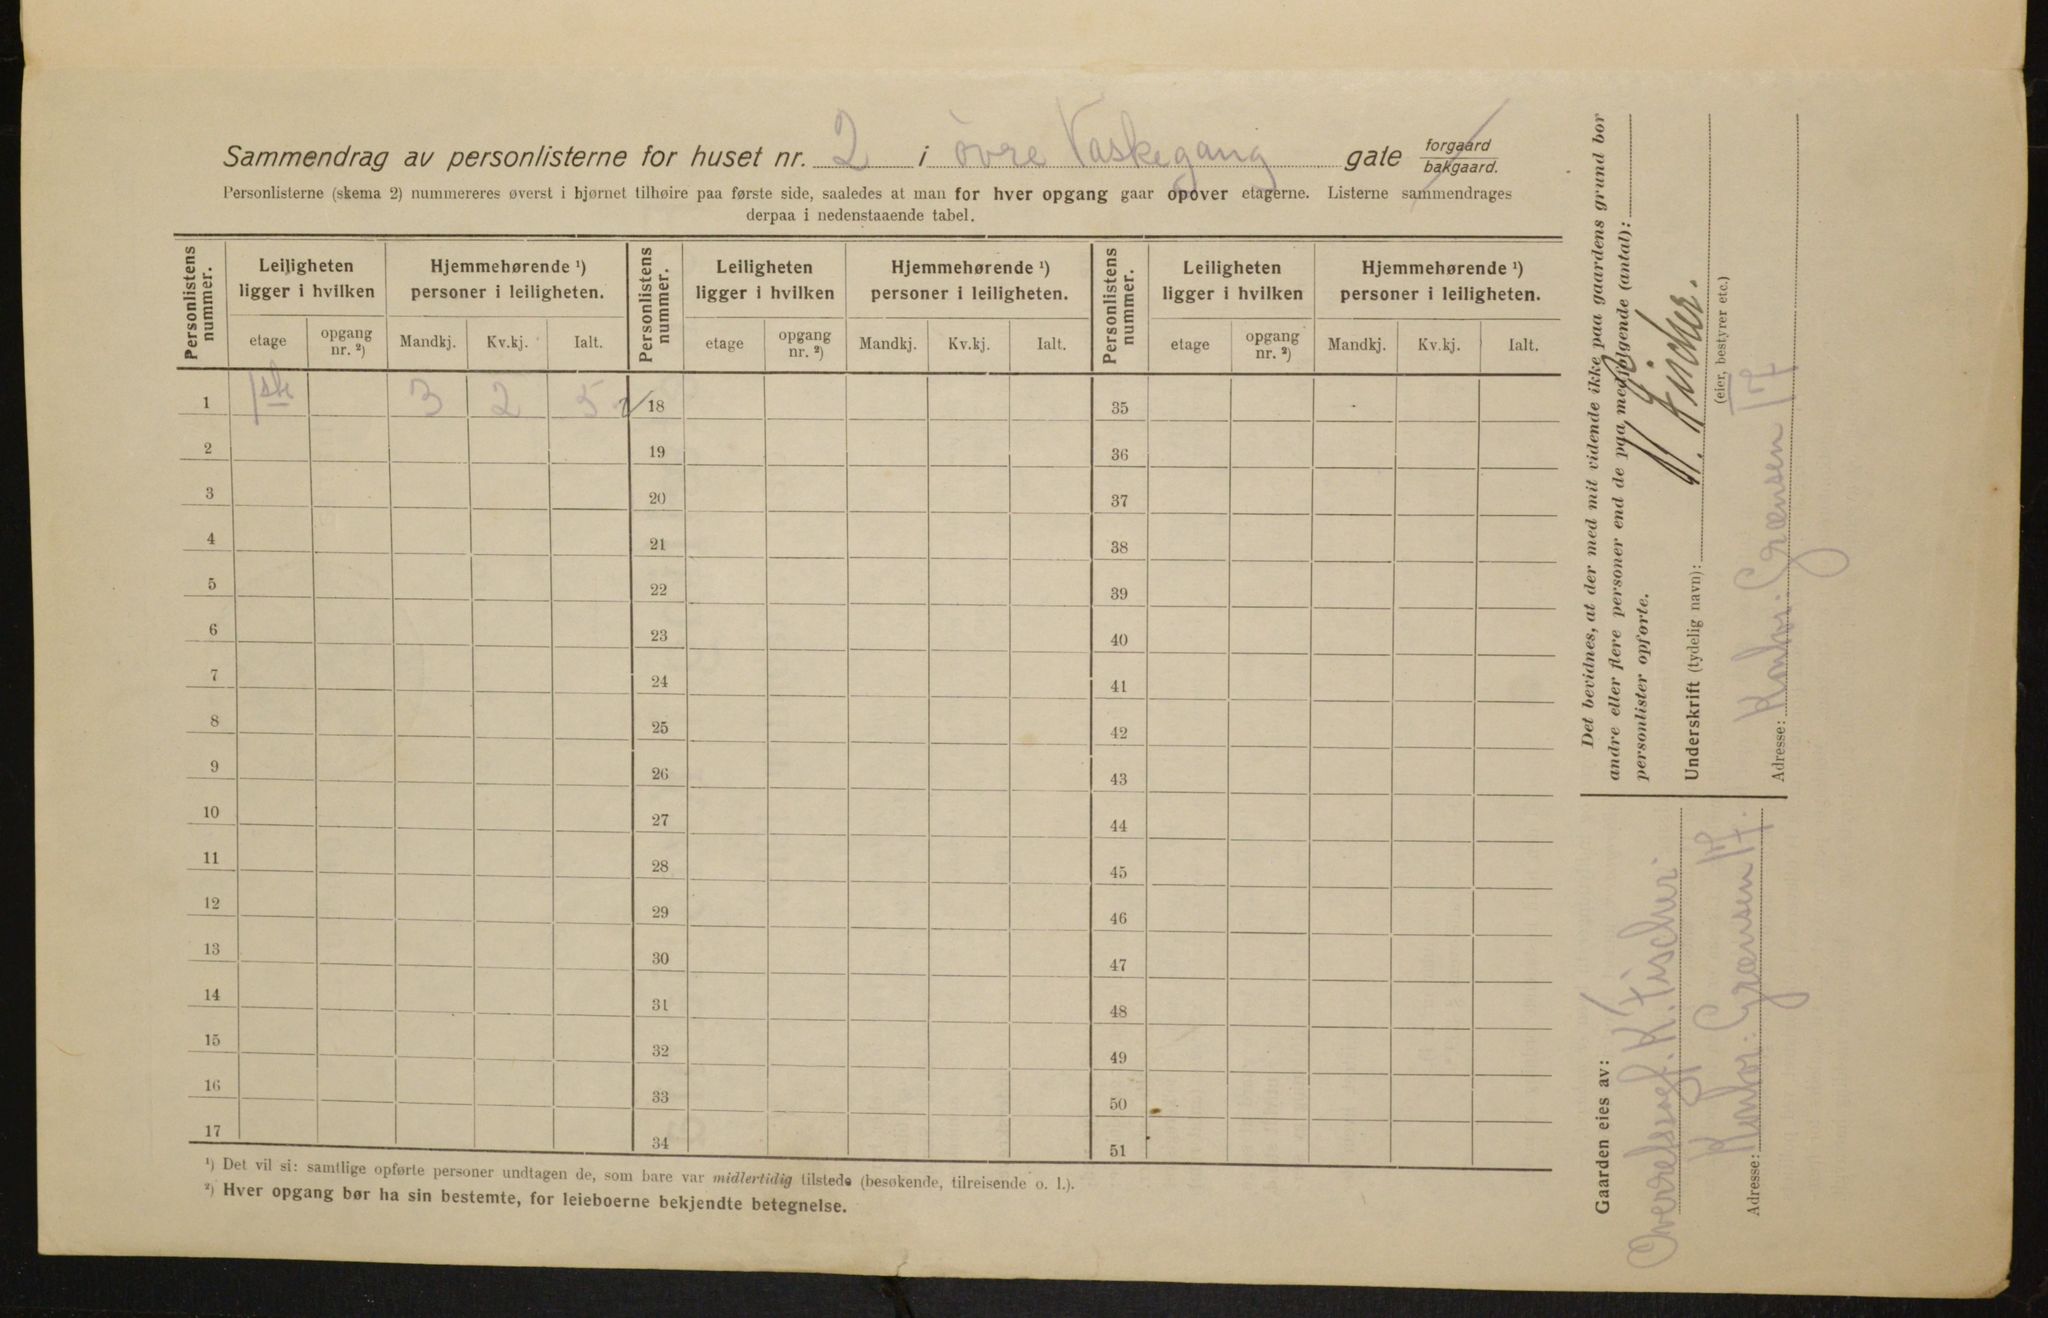 Sammendrag av personlisterne for huset nr. 2 i øvre Vaskegang gate forgaard bakgaard.
Personlisterne (skema 2) nummereres øverst i hjørnet tilhøire paa første side, saaledes at man for hver opgang gaar opover etagerne. Listerne sammendrages
derpaa i nedenstaaende tabel.
Personlistens nummer. Leiligheten ligger i hvilken Hjemmehørende ¹) personer i leiligheten. Personlistens nummer. Leiligheten ligger i hvilken Hjemmehørende ¹) personer i leiligheten. Personlistens nummer. Leiligheten ligger i hvilken Hjemmehørende ¹) personer i leiligheten.
etage opgang nr. ²) Mandkj. Kv.kj. Ialt. etage opgang nr. ²) Mandkj. Kv.kj. Ialt. etage opgang nr. ²) Mandkj. Kv.kj. Ialt.
1 1ste 3 2 5 18 35
2 19 36
3 20 37
4 21 38
5 22 39
6 23 40
7 24 41
8 25 42
9 26 43
10 27 44
11 28 45
12 29 46
13 30 47
14 31 48
15 32 49
16 33 50
17 34 51
¹) Det vil si: samtlige opførte personer undtagen de, som bare var midlertidig tilstede (besøkende, tilreisende o. l.).
²) Hver opgang bør ha sin bestemte, for leieboerne bekjendte betegnelse.
Det bevidnes, at der med mit vidende ikke paa gaardens grund bor
andre eller flere personer end de paa medfølgende (antal):
personlister opførte.
Underskrift (tydelig navn): K. Fischer.
(eier, bestyrer etc.)
Adresse: Kontor. Grænsen 17
Gaarden eies av:
Overretssagf. K. Fischer
Kontor. Grænsen 17.
Adresse: